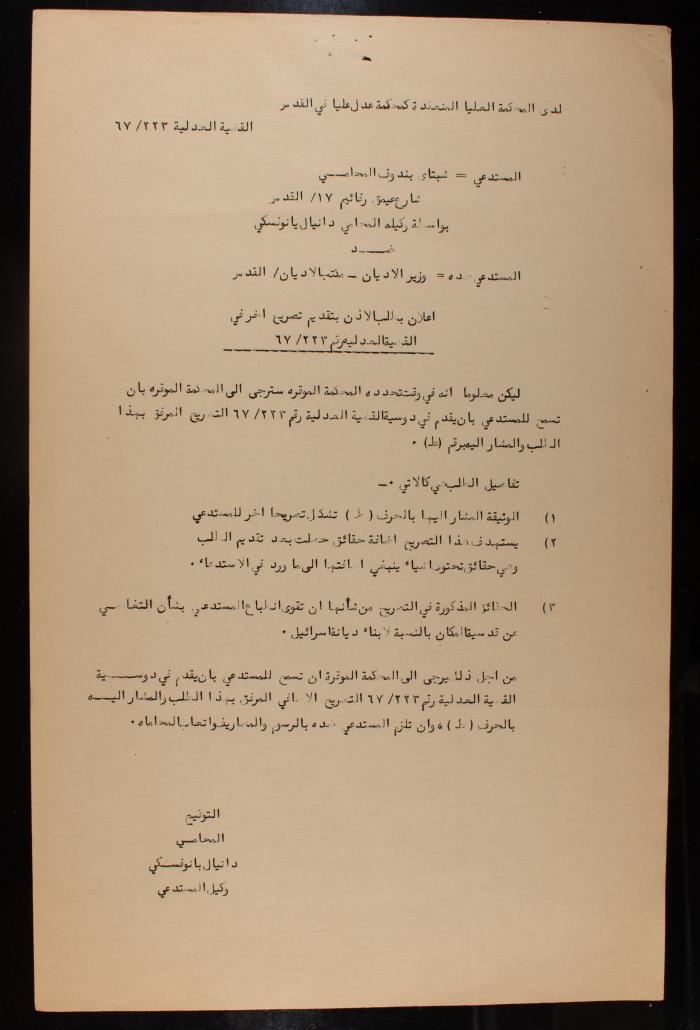 لدى المحكمة العليا المنعقدة كمحكمة عدل عليا في القدس
القضية العدلية ٢٢٣/ ٦٧
المستدعي = شبتاي بندوف المحامي
شارع عيمق رفائيم ١٧/ القدس
بواسطة وكيله المحامي دانيال يانوفسكي
ضد
المستدعى ضده = وزير الاديان ـ مكتب الاديان/ القدس
اعلان بطلب الاذن بتقديم تصريح اخر في
القضية العدلية رقم ٢٢٣/ ٦٧
ليكن معلوما انه في وقت تحدده المحكمة الموقره سترجى الى المحكمة الموقره بان
تسمح للمستدعي بان يقدم في دوسية القضية العدلية رقم ٢٢٣/ ٦٧ التصريح المرفق بهذا
الطلب والمشار اليه برقم (ط) ٠
تفاصيل الطلب هي كالاتي ٠ـ
١) الوثيقة المشار اليها بالحرف ( ط ) تشكل تصريحا اخر للمستدعي
٢) يستهدف هذا التصريح اضافة حقائق حصلت بعد تقديم الطلب
وهي حقائق تحتوي اشياء ينبغي اضافتها الى ما ورد في الاستدعاء ٠
٣) الحقائق المذكورة في التصريح من شأنها ان تقوى انطباع المستدعي بشأن التغاضي
عن قدسية المكان بالنسبة لابناء ديانة اسرائيل ٠
من اجل ذلك يرجى الى المحكمة الموقرة ان تسمح للمستدعي بان يقدم في دوسية
القضية العدلية رقم ٢٢٣/ ٦٧ التصريح الاضافي المرفق بهذا الطلب والمشار اليه
بالحرف ( ط ) ، وان تلزم المستدعى ضده بالرسوم والمصاريف واتعاب المحاماه ٠
التوقيع
المحامي
دانيال يانوفسكي
وكيل المستدعي